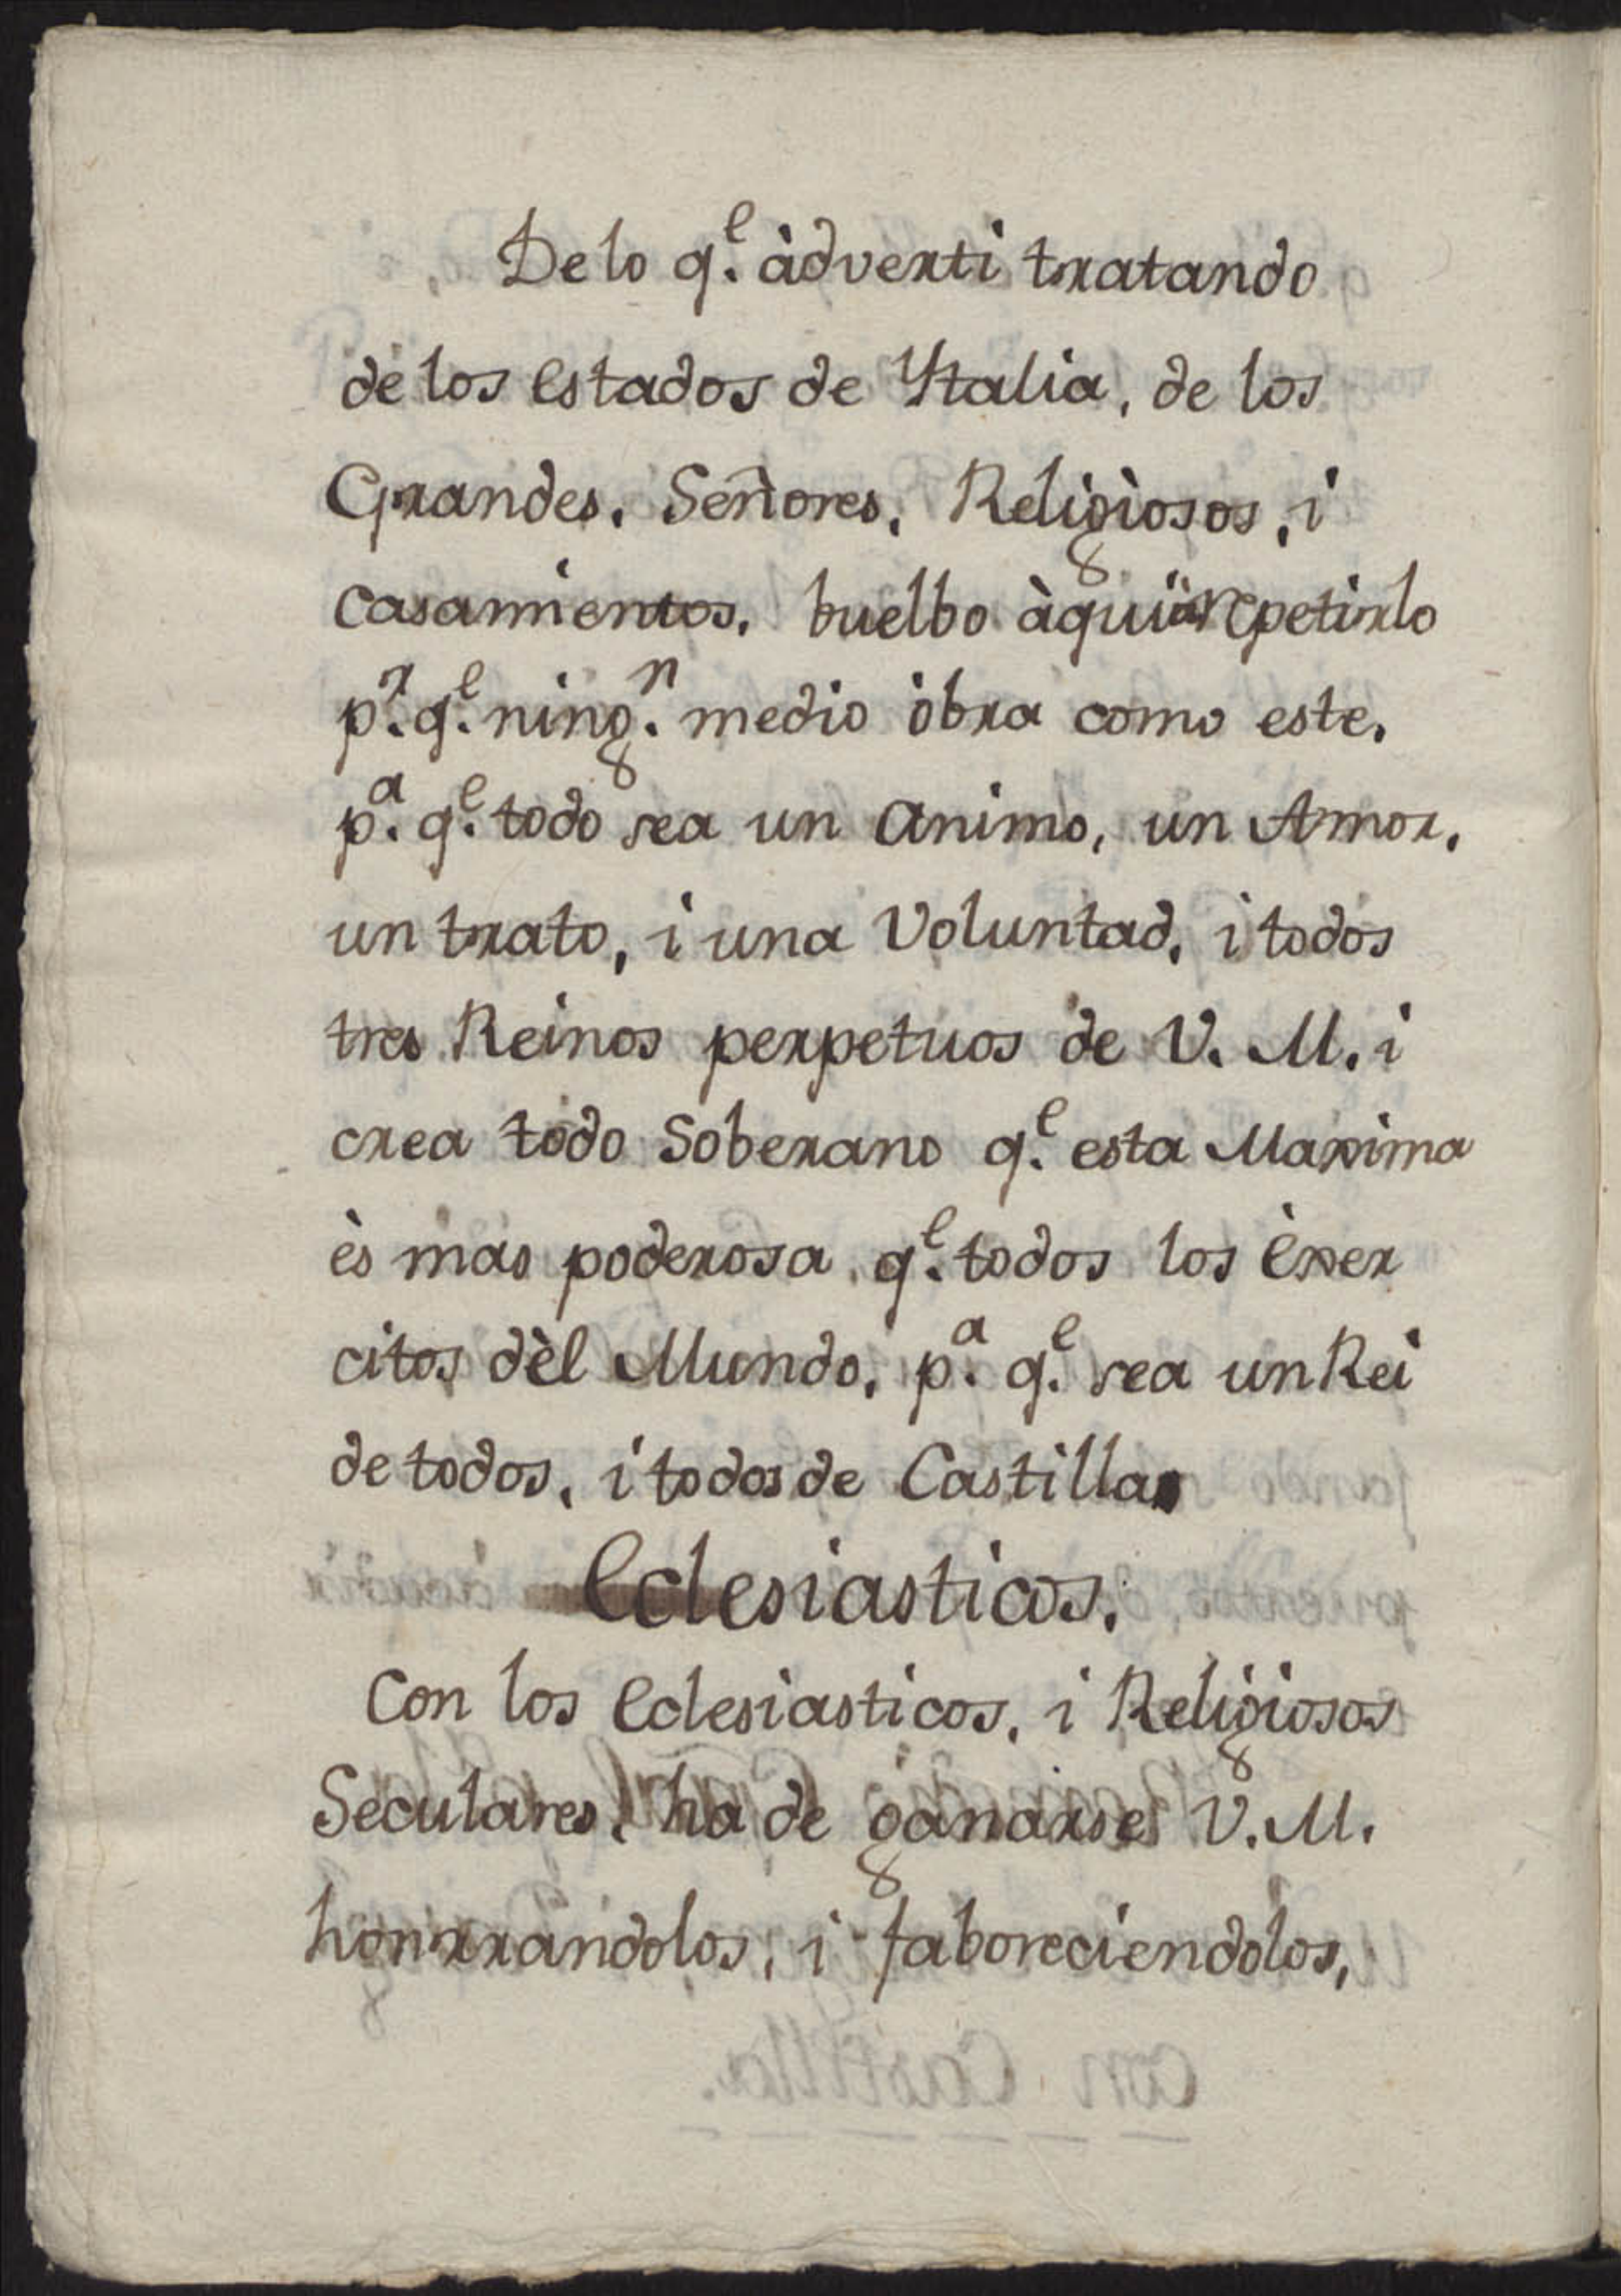 De lo q.e àdverti tratando
de los estados de Ytalia, de los
Grandes, Señores, Religiosos, i
casamientos, buelbo àqui à repetirlo
p.r q.e ning.n medio òbra como este,
p.a q.e todo sea un animo, un Amor,
un trato, i una Voluntad, i todos
tres Reinos perpetuos de V. M. i
crea todo Soberano q.e esta Maxima
ès mas poderosa q.e todos los Èxer
citos dèl Mundo, p.a q.e sea un Rei
de todos, i todos de Castilla.
Eclesiasticos.
Con los Eclesiasticos, i Religiosos
Seculares, ha de ganarse V. M.
honrrandolos, i faboreciendolos,